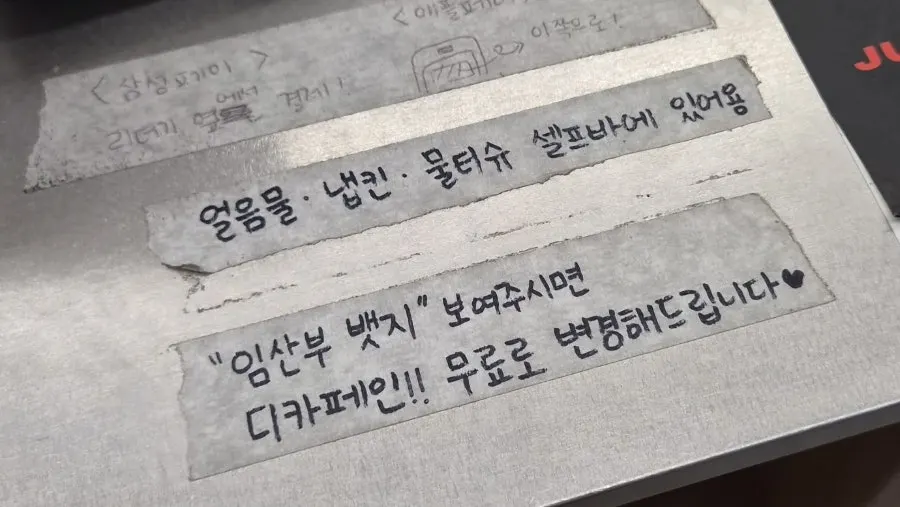 <애플페이
이쪽으로!
<삼성페이>
리더기 에서 결제!
얼음물·냅킨·물티슈 셀프바에 있어용
"임산부 뱃지" 보여주시면
디카페인!! 무료로 변경해드립니다♥
JU